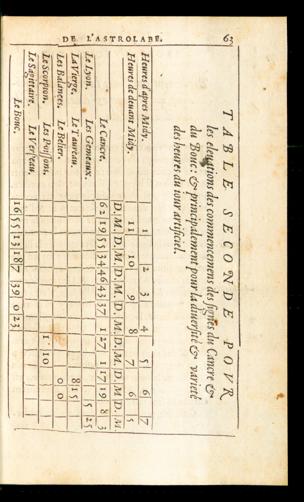 DE L'ASTROLABE. 63
TABLE SECONDE POVR
les eleuations des commencemens des signes du Cancre &
du Bouc: & principalement pour la diuersité & varieté
des heures du iour artificiel.
Heures d'apres Midy. 1 2 3 4 5 6 7
Heures de deuant Midy. 11 10 9 8 7 6 5
D. M. D. M. D. M. D. M. D. M. D. M. D. M.
Le Cancre. 62 19 55 34 46 43 37 1 27 1 17 19 8 3
Le Lyon. Les Gemeaux. 5 25
La Vierge. Le Taureau. 8 15
Les Balances. Le Belier. 0 0
Le Scorpion. Les Poissons. 1 10
Le Sagittaire. Le Verseau.
Le Bouc. 16 55 13 18 7 39 0 23